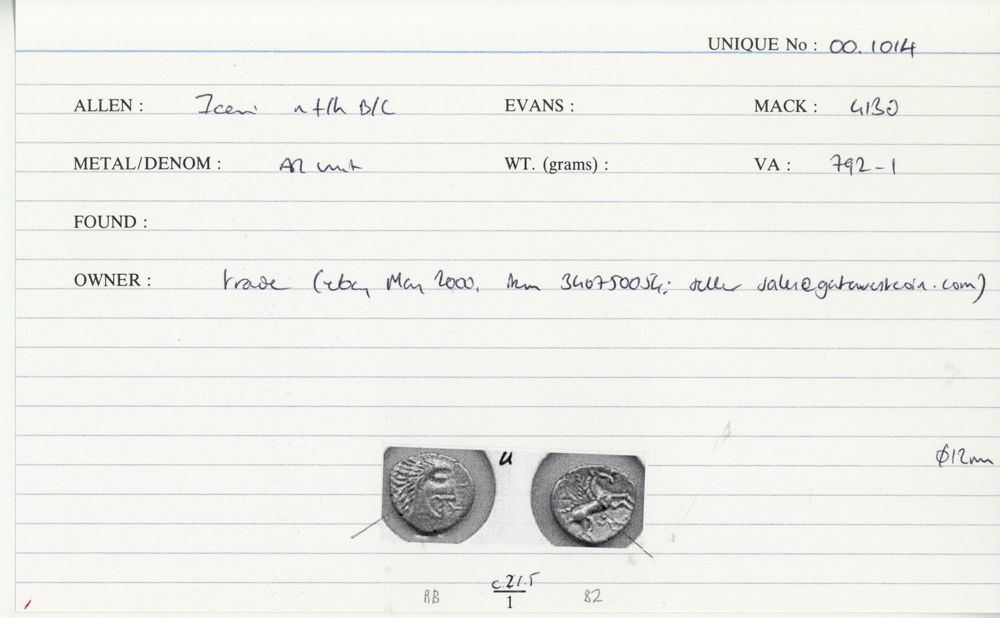 UNIQUE No : 00.1014
ALLEN : Iceni f/h B/C EVANS : MACK : 413D
METAL/DENOM : AR unit WT. (grams) : VA : 792-1
FOUND :
OWNER : trade (ebay May 2000, item 340750054; seller sales@gatewestcoin.com)
u
Φ12mm
c.21.5
RB 1 82